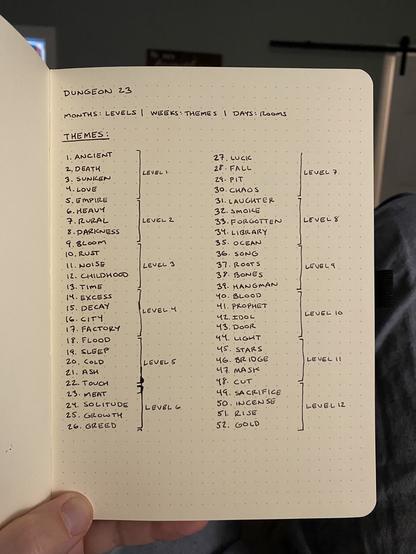 DUNGEON 23
MONTHS: LEVELS | WEEKS: THEMES | DAYS: ROOMS
THEMES:
1. ANCIENT
2. DEATH
3. SUNKEN
4. LOVE
5. EMPIRE
6. HEAVY
7. RURAL
8. DARKNESS
9. BLOOM
10. RUST
11. NOISE
12. CHILDHOOD
13. TIME
14. EXCESS
15. DECAY
16. CITY
17. FACTORY
18. FLOOD
19. SLEEP
20. COLD
21. ASH
22. TOUCH
23. MEAT
24. SOLITUDE
25. GROWTH
26. GREED
LEVEL 1
LEVEL 2
LEVEL 3
LEVEL 4
LEVEL 5
LEVEL 6
27. LUCK
28. FALL
29. PIT
30. CHAOS
31. LAUGHTER
32. SMOKE
33. FORGOTTEN
34. LIBRARY
35. OCEAN
36. SONG
37. ROOTS
38. BONES
39. HANGMAN
40. BLOOD
41. PROPHET
42. IDOL
43. DOOR
44. LIGHT
45. STARS
46. BRIDGE
47. MASK
48. CUT
49. SACRIFICE
50. INCENSE
51. RISE
52. GOLD
LEVEL 7
LEVEL 8
LEVEL 9
LEVEL 10
LEVEL 11
LEVEL 12